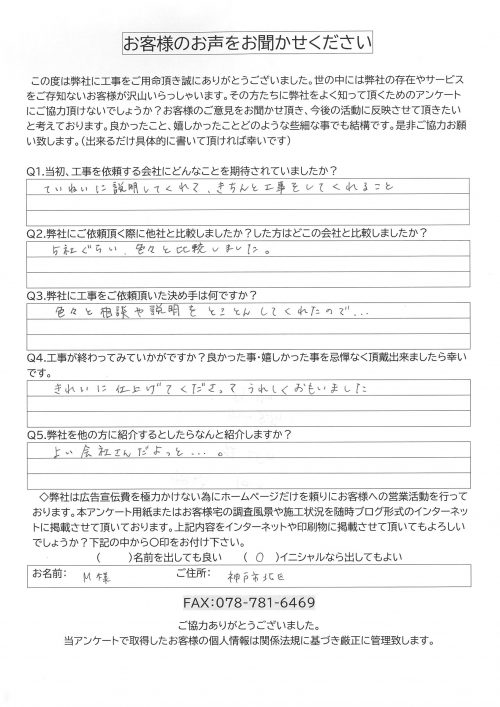 お客様のお声をお聞かせください
この度は弊社に工事をご用命頂き誠にありがとうございました。世の中には弊社の存在やサービス
をご存知ないお客様が沢山いらっしゃいます。その方たちに弊社をよく知って頂くためのアンケート
にご協力頂けないでしょうか？お客様のご意見をお聞かせ頂き、今後の活動に反映させて頂きたい
と考えております。良かったこと、嬉しかったことどのような些細な事でも結構です。是非ご協力お願
い致します。（出来るだけ具体的に書いて頂ければ幸いです）
Q1.当初、工事を依頼する会社にどんなことを期待されていましたか？
ていねいに説明してくれて、きちんと工事をしてくれること
Q2.弊社にご依頼頂く際に他社と比較しましたか？した方はどこの会社と比較しましたか？
5社ぐらい、色々と比較しました。
Q3.弊社に工事をご依頼頂いた決め手は何ですか？
色々と相談や説明をとことんしてくれたので…
Q4.工事が終わってみていかがですか？良かった事・嬉しかった事を忌憚なく頂戴出来ましたら幸い
です。
きれいに仕上げてくださってうれしくおもいました
Q5.弊社を他の方に紹介するとしたらなんと紹介しますか？
よい会社さんだよっと…。
◇弊社は広告宣伝費を極力かけない為にホームページだけを頼りにお客様への営業活動を行って
おります。本アンケート用紙またはお客様宅の調査風景や施工状況を随時ブログ形式のインターネッ
トに掲載させて頂いております。上記内容をインターネットや印刷物に掲載させて頂いてもよろしい
でしょうか？下記の中から〇印をお付け下さい。
（　　）名前を出しても良い　（ ○ ）イニシャルなら出してもよい
お名前： M様　ご住所： 神戸市北区
FAX：078-781-6469
ご協力ありがとうございました。
当アンケートで取得したお客様の個人情報は関係法規に基づき厳正に管理致します。